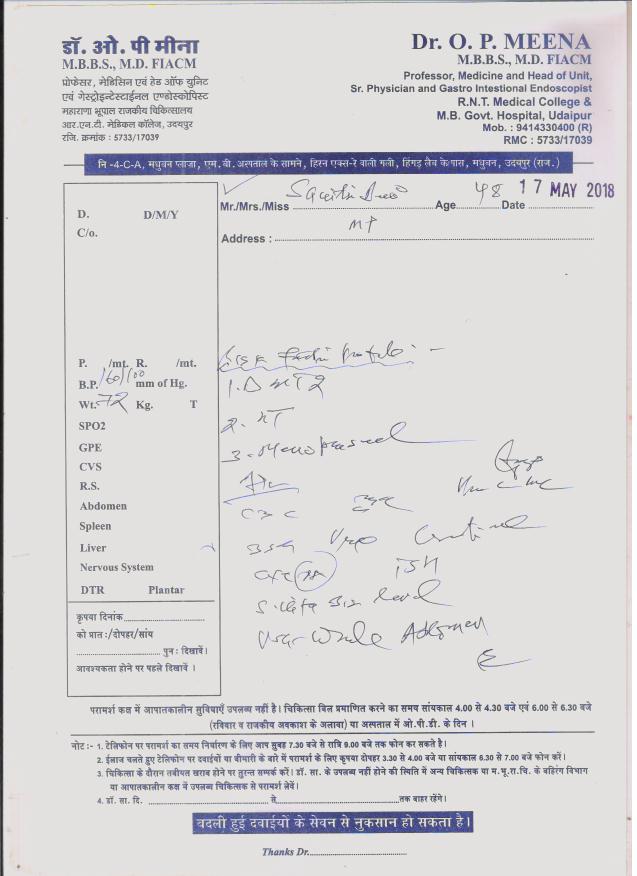 डॉ. ओ. पी मीना
M.B.B.S., M.D. FIACM
प्रोफेसर, मेडिसिन एवं हेड ऑफ युनिट
एवं गेस्ट्रोइन्टेस्टाईनल एण्डोस्कोपिस्ट
महाराणा भूपाल राजकीय चिकित्सालय
आर.एन.टी. मेडिकल कॉलेज, उदयपुर
रजि. क्रमांक : 5733/17039
Dr. O. P. MEENA
M.B.B.S., M.D. FIACM
Professor, Medicine and Head of Unit,
Sr. Physician and Gastro Intestional Endoscopist
R.N.T. Medical College &
M.B. Govt. Hospital, Udaipur
Mob. : 9414330400 (R)
RMC : 5733/17039
नि -4-C-A, मधुवन प्लाजा, एम.बी. अस्पताल के सामने, हिरन एक्स-रे वाली गली, हिंगड़ लैब के पास, मधुवन, उदयपुर (राज.)
Mr./Mrs./Miss Age 48 Date 17 MAY 2018
Address : MP
D. D/M/Y
C/o.
P. /mt. R. /mt.
B.P. 160/100 mm of Hg.
Wt. 72 Kg. T
SPO2
GPE
CVS
R.S.
Abdomen
Spleen
Liver
Nervous System
DTR Plantar
Risk Factor Profile :-
1. D M T2
2. HT
3. Menopausal
CBC
Urea Creatinine
TSH
level
Whole Abdomen
कृपया दिनांक
को प्रात :/दोपहर/सांय
पुन : दिखावें।
आवश्यकता होने पर पहले दिखावें ।
परामर्श कक्ष में आपातकालीन सुविधाएँ उपलब्ध नहीं है। चिकित्सा बिल प्रमाणित करने का समय सांयकाल 4.00 से 4.30 बजे एवं 6.00 से 6.30 बजे
(रविवार व राजकीय अवकाश के अलावा) या अस्पताल में ओ.पी.डी. के दिन ।
नोट :- 1. टेलिफोन पर परामर्श का समय निर्धारण के लिए आप सुबह 7.30 बजे से रात्रि 9.00 बजे तक फोन कर सकते है।
2. ईलाज चलते हुए टेलिफोन पर दवाईयों या बीमारी के बारे में परामर्श के लिए कृपया दोपहर 3.30 से 4.00 बजे या सांयकाल 6.30 से 7.00 बजे फोन करें।
3. चिकित्सा के दौरान तबीयत खराब होने पर तुरन्त सम्पर्क करें। डॉ. सा. के उपलब्ध नहीं होने की स्थिति में अन्य चिकित्सक या म.भू.रा.चि. के बहिरंग विभाग
या आपातकालीन कक्ष में उपलब्ध चिकित्सक से परामर्श लेवें।
4. डॉ. सा. दि. से तक बाहर रहेंगे।
बदली हुई दवाईयों के सेवन से नुकसान हो सकता है।
Thanks Dr.